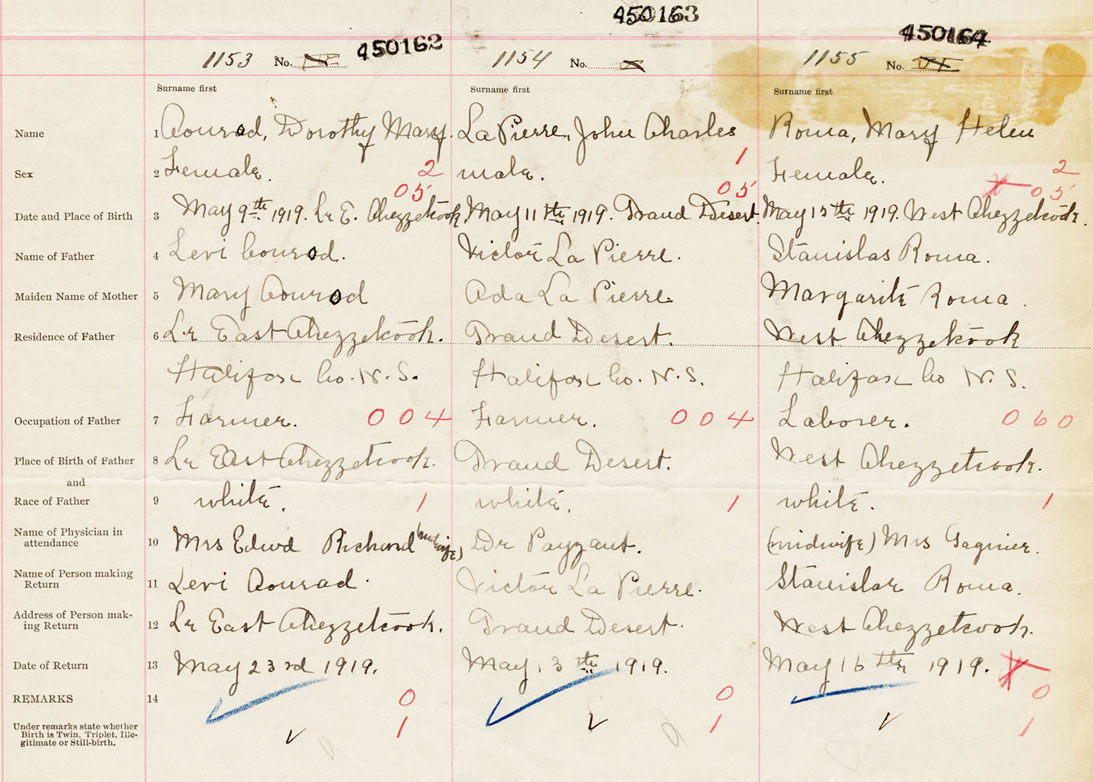 450162 450163 450164
1153 No. 1154 No. 1155 No.
Surname first Surname first Surname first
Name 1 Conrod, Dorothy Mary. La Pierre, John Charles Roma, Mary Helen
Sex 2 Female. 2 male. 1 Female. 2
05 05 x 05
Date and Place of Birth 3 May 9th 1919. Lr E. Chezzetcook May 11th 1919. Grand Desert. May 15th 1919. West Chezzetcook.
Name of Father 4 Levi Conrod. Victor La Pierre. Stanislas Roma.
Maiden Name of Mother 5 Mary Conrod Ada La Pierre Margarite Roma.
Residence of Father 6 Lr East Chezzetcook. Grand Desert. West Chezzetcook
Halifax Co. N.S. Halifax Co. N.S. Halifax Co N.S.
Occupation of Father 7 Farmer. 004 Farmer. 004 Laborer. 060
Place of Birth of Father 8 Lr East Chezzetcook. Grand Desert. West Chezzetcook.
and
Race of Father 9 white. 1 white. 1 white. 1
Name of Physician in
attendance 10 Mrs Edwd Richard (midwife) Dr Payzant. (midwife) Mrs Gagnier.
Name of Person making
Return 11 Levi Conrad. Victor La Pierre. Stanislas Roma.
Address of Person mak-
ing Return 12 Lr East Chezzetcook. Grand Desert. West Chezzetcook.
Date of Return 13 May 23rd 1919. May 13th 1919. May 16th 1919. x
REMARKS 14 0 0 0
Under remarks state whether
Birth is Twin, Triplet, Ille-
gitimate or Still-birth. 1 1 1